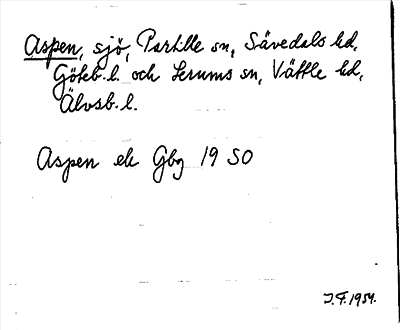 Aspen, sjö, Partille sn, Sävedals hd,
Göteb. l. och Lerums sn, Vättle hd,
Älvsb. l.
Aspen ek Gbg 19 SO
J.F. 1954.